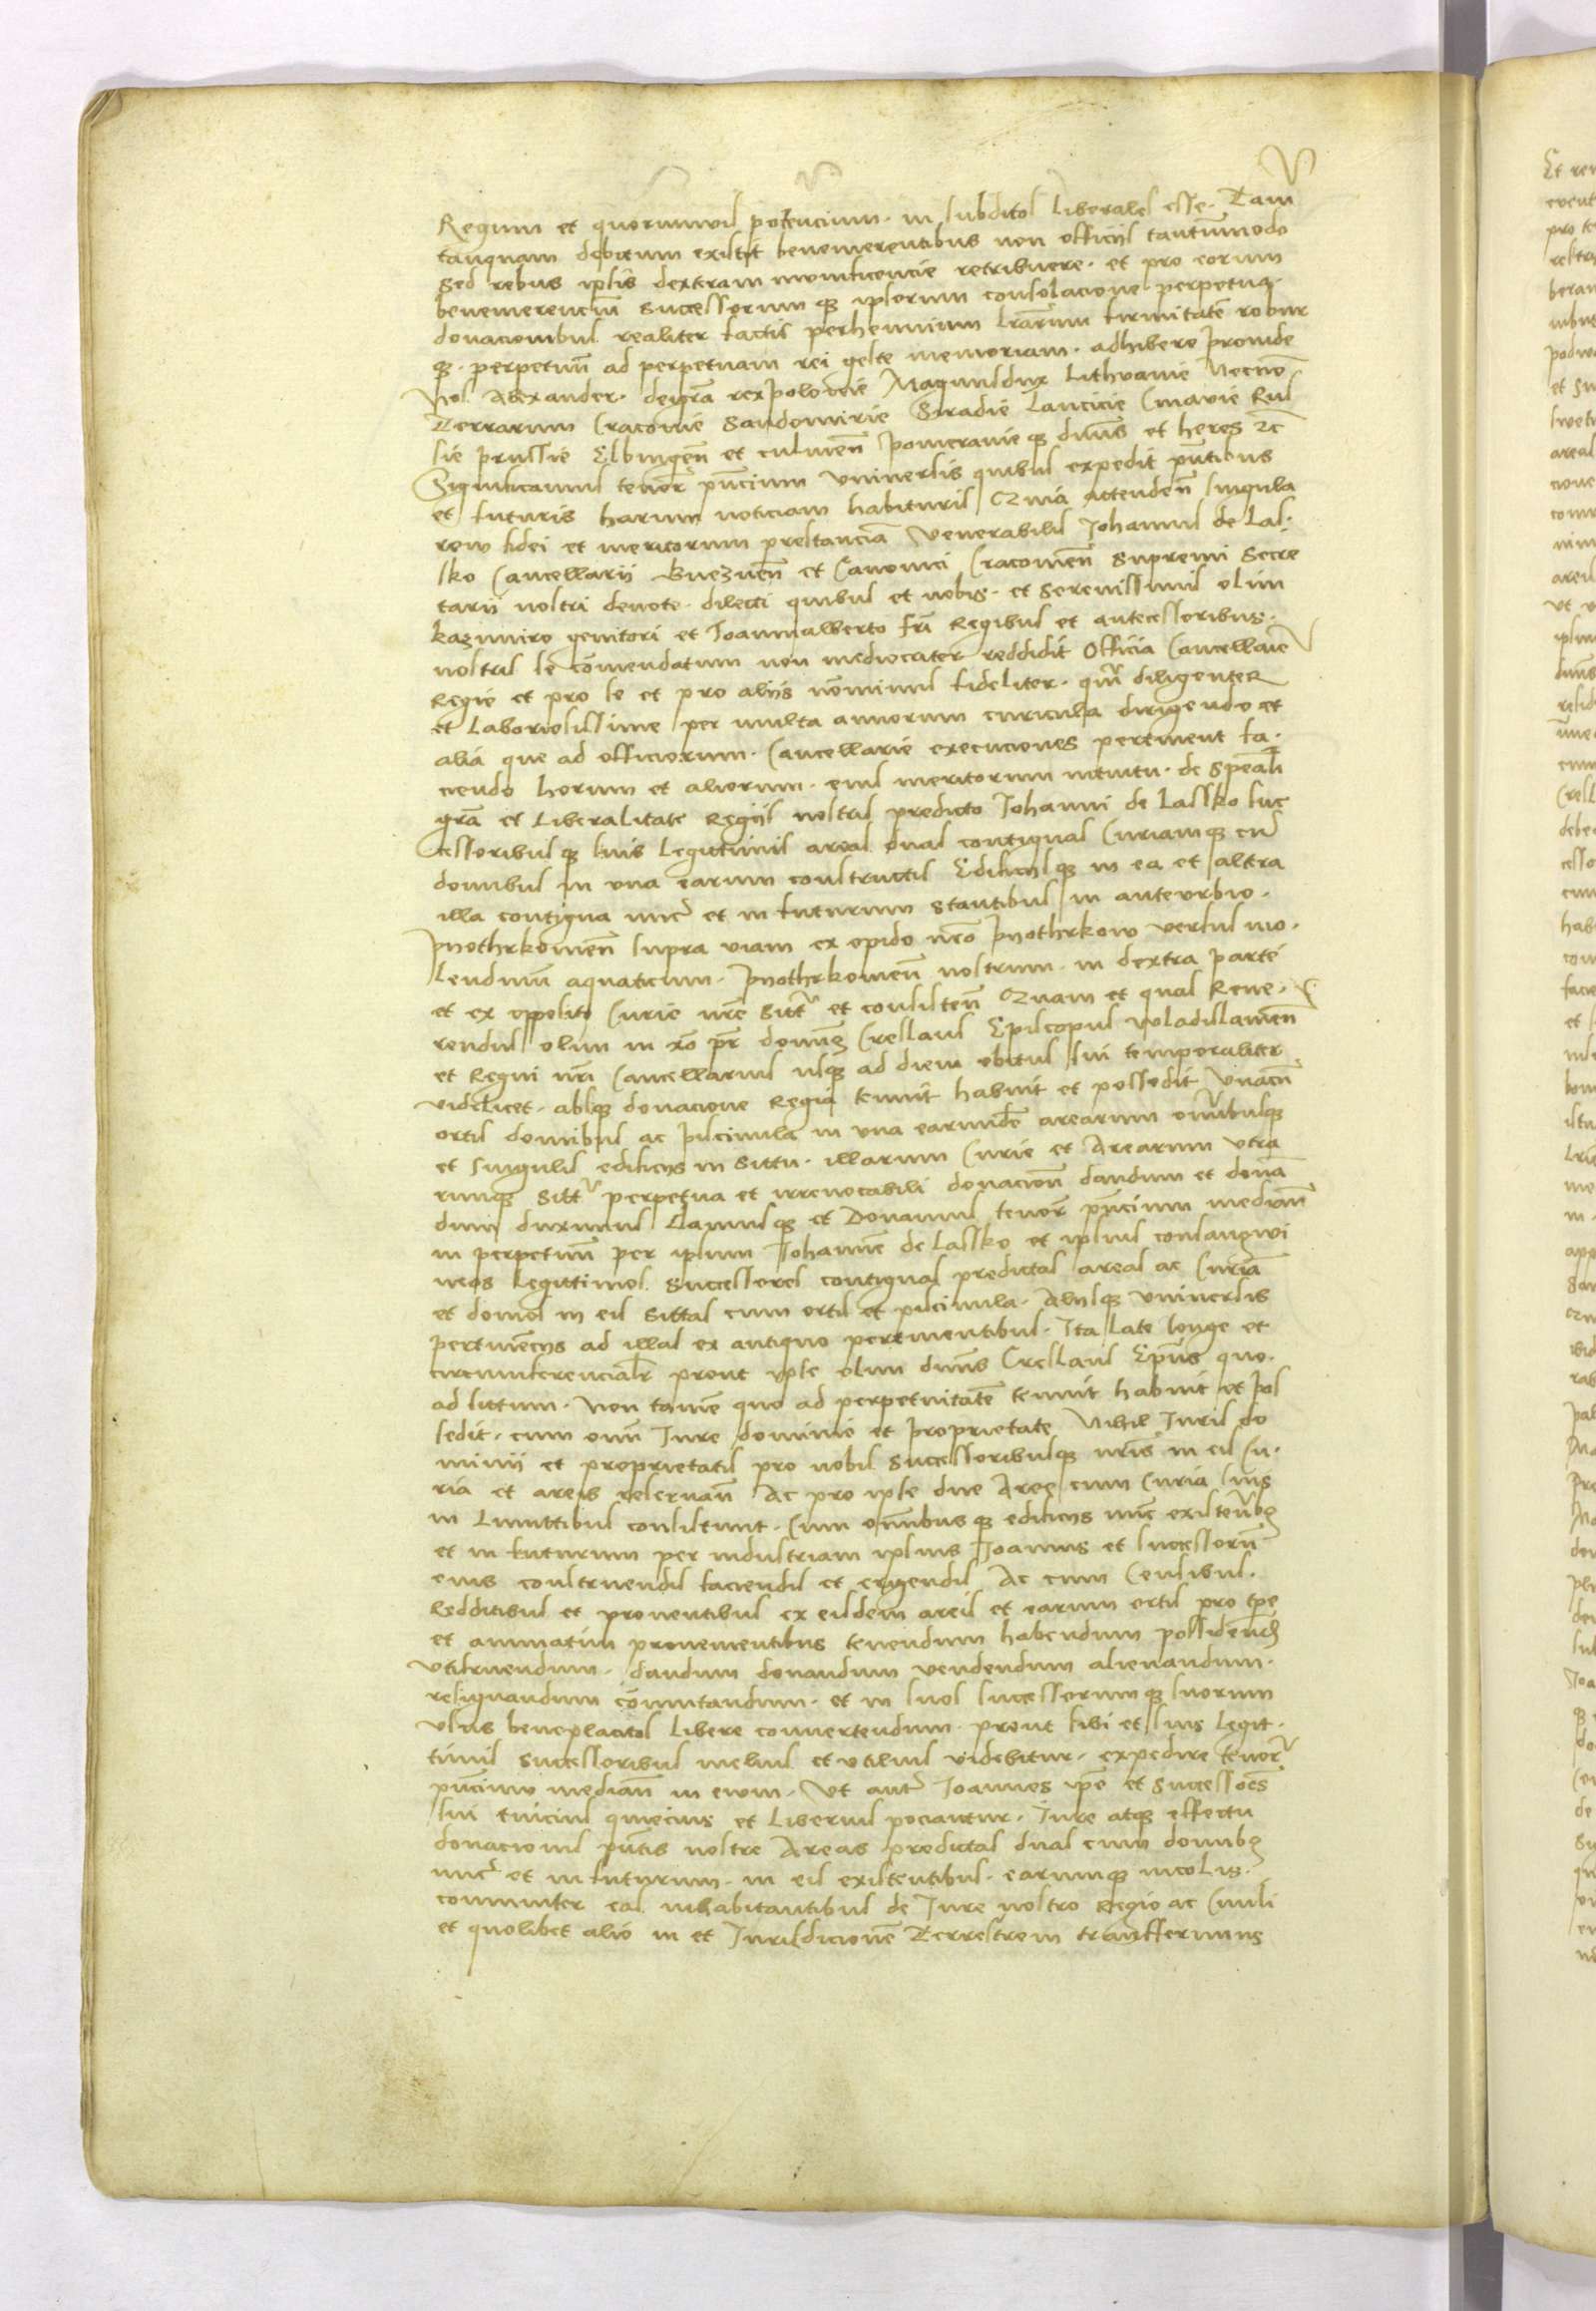 Regum et quorumvis potencium. in subditos Liberales esse. Tam
tanquam debitum existit benemerentibus non officiis tantummodo
Sed rebus ipsis dexteram munificencie retribuere. et pro eorum
benemerenciū Successorum qȝ ipsorum consolacione perpetua.
donacionibus realiter factis perhennium lrārum firmitatē robur
qȝ. perpetuū ad perpetuam rei geste memoriam. adhibere Proinde
Nos Alexander. dei grā rex polonie Magnusdux Lithvanie Necnō
Terrarum Cracovie Sandomirie Siradie Lancicie Cuiavie Rus
sie prussie Elbingeñ et culmeñ pomeranie qȝ dn̄us et heres ꝛc̄
Significamus tenor̄ pñcium vniversis quibus expedit pñtibus
et futuris harum noticiam habituris Quia attendeñ singula
rem fidei et meritorum prestanciā Venerabilis Johannis de Las.
sko Cancellarii Gneznēn et Canonici Cracovieñ Supremi Secre
tarii nostri devote. dilecti quibus et nobis. et Serenissimis olim
kazimiro genitori et Joannialberto fr̄i Regibus et antecessoribus.
nostris se cōmendatum non mediocriter reddidit Officia Cancellarie
Regie et pro se et pro aliis nōminus fideliter. qm̄ diligenter
et Laboriosissime per multa annorum curicula dirigendo et
alia que ad officiorum. Cancellarie execuciones pertinent fa.
ciendo horum et aliorum. eius meritorum intuitu. de Speāli
grā et Liberalitate Regiis nostris predicto Johanni de Lassko suc
cessoribus qȝ suis Legittimis areas duas contiguas Curiamqȝ cū
domibus in vna earum constructis Edificiisqȝ in ea et altera
illa contigua nūc et in futurum stantibus in antevrbio.
Pyothrkovieñ supra viam ex opido nr̄o Pyothrkow versus mo.
Lendinū aquaticum. Pyothrkovieñ nostrum. in dextra parte
et ex opposito Curie nr̄e Sitt et consisteñ Quam et quas Reve.
rendus olim in xp̄o pr̄ domn̄s Creslaus Episcopus wladislavieñ
et Regni nr̄i Cancellarius usqȝ ad diem obitus sui temporaliter
videlicet. absqȝ donacione Regia tenuit habuit et possedit Vnacū
ortis domibus ac piscinula in vna earundē arearum omībusqȝ
et singulis edificiis in Sittu. illarum Curie et Arearum vtra
rumqȝ Sitt perpetua et irrevocabili donacioñ dandum et donā
dum duximus Damusqȝ et Donamus tenor̄ pñcium mediañ
in perpetuū per ipsum Johannē de Lassko et ipsius consangwi
neos Legittimos. Successores contiguas predictas areas ac Curiā
et domos in eis Sittas cum ortis et piscinula. Aliisqȝ vniversis
pertinēciis ad illas ex antiquo pertinentibus. Ita Late longe et
circumferencialr̄ prout ipse olim dn̄us Creslaus Ep̄us quo.
ad sittum. Non tamē quo ad perpetuitatē tenuit habuit et pos
sedit. cum omñ Jure dominio et proprietate Nihil Juris do
minii et proprietatis pro nobis Successoribusqȝ nr̄is in eis Cu.
ria et areis reservañ Ac pro ipse due Aree cum Curia suis
in Limittibus consistunt. Cum omnibus qȝ edificiis nūc existentibȝ
et in futurum per industriam ipsius Joannis et successorū
eius construendis faciendis et erigendis Ac cum Censibus.
Redditibus et proventibus ex eisdem areis et earum ortis pro tp̄e
et annuatim provenientibus tenendum habendum possidendū
vtifruendum. dandum donandum vendendum alienandum.
resignandum cōmutandum. et in suos successorumqȝ suorum
vsus beneplacitos Libere convertendum. prout sibi et suis Legit.
timis Successoribus melius et vtilius videbitur. expedire tenor̄
pñcium mediañ in evum. Vt aut Joannes ip̄e et Successōes
sui tucius quiecius et Liberius pociantur. Jure atqȝ effectu
donacionis pñtis nostre Areas predictas duas cum domibȝ
nūc et in futurum. in eis existentibus. earumqȝ incolis.
communiter eas inhabitantibus de Jure nostro Regio ac Civili
et quolibet alio in et Jurisdicionē Terrestrem transferimus